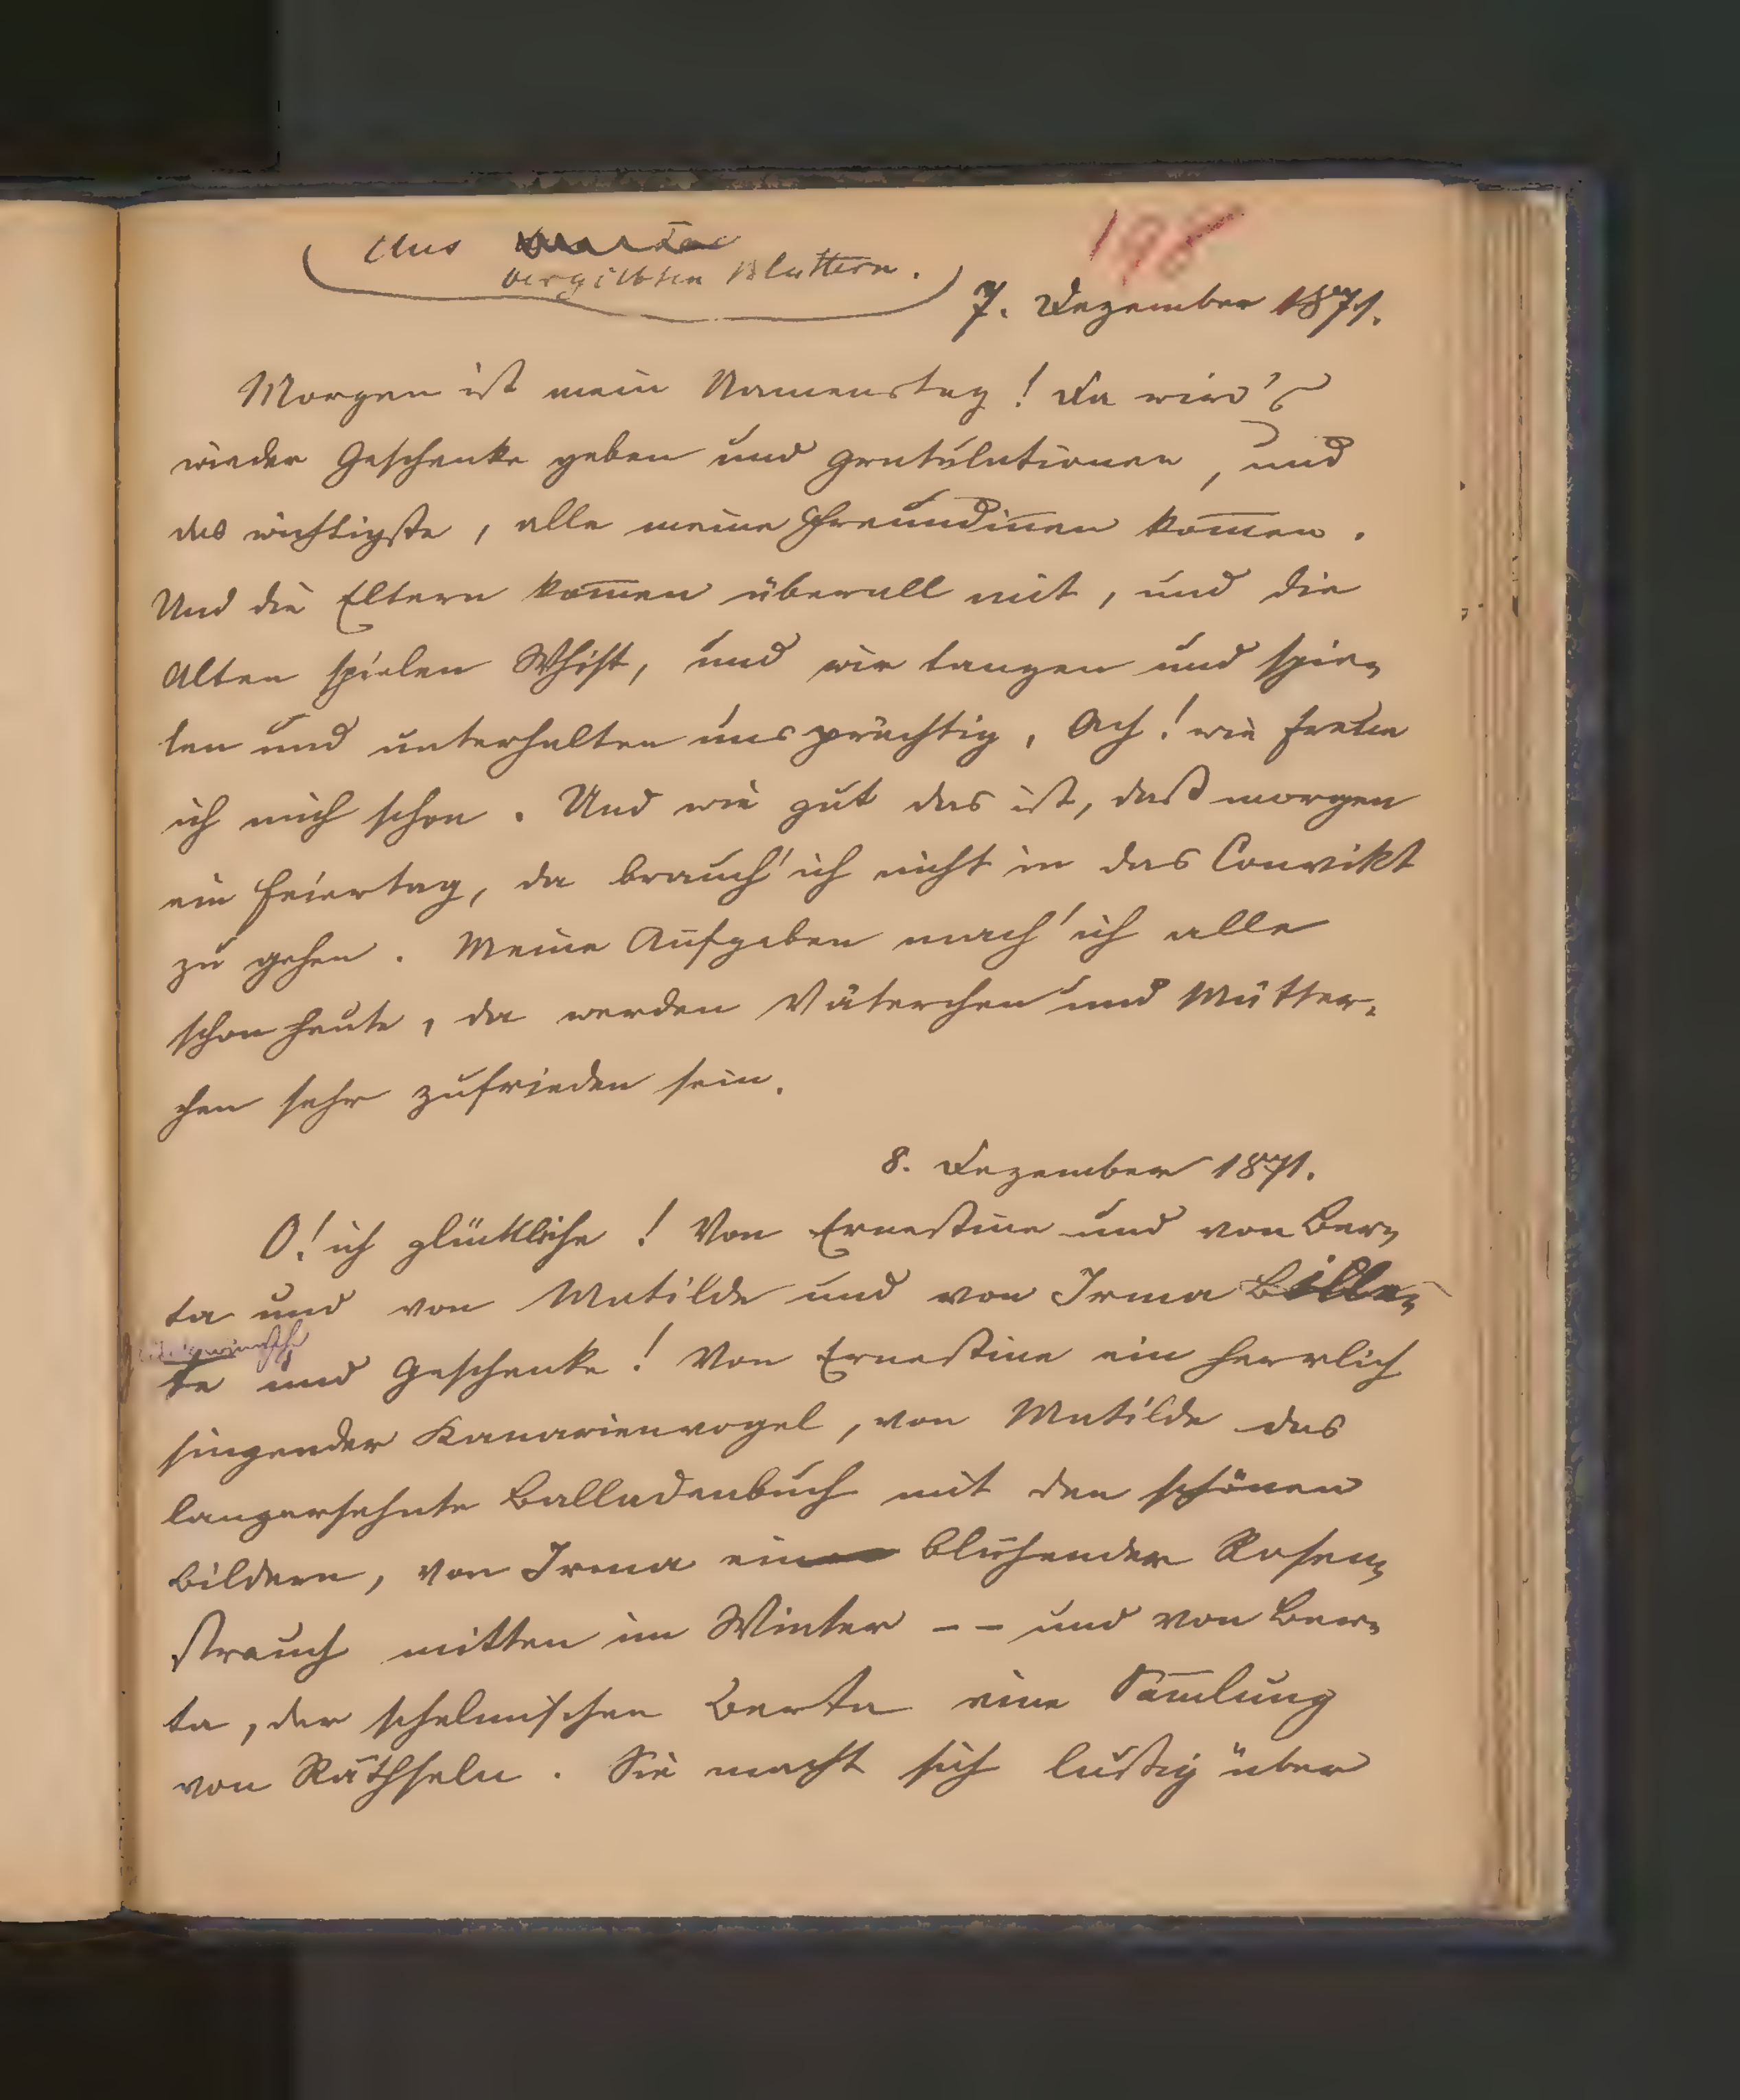 Aus
vergilbten Blättern.
198
7. Dezember 1871.
Morgen ist mein Namenstag! Da wird's
wieder Geschenke geben und Gratulationen, und
das wichtigste, alle meine Freundiñen kom̄en.
Und die Eltern kom̄en überall mit, und die
Alten spielen Whist, und wir tanzen und spie-
len und unterhalten uns prächtig, Ach! wie freue
ich mich schon. Und wie gut das ist, daß morgen
ein Feiertag, da brauch' ich nicht in das Convikt
zu gehen. Meine Aufgaben mach' ich alle
schon heute, da werden Väterchen und Mütter-
chen sehr zufrieden sein.
8. Dezember 1871.
O! ich glückliche! Von Ernestine und von Ber-
ta und von Matilde und von Irma Bille-
te und Geschenke! Von Ernestine ein herrlich
singender Kanarienvogel, von Matilde das
langersehnte Balladenbuch mit den schönen
Bildern, von Irma ein blühender Rosen-
strauch mitten im Winter -- und von Ber-
ta, der schelmischen Berta eine Sam̄lung
von Räthseln. Sie macht sich lustig über